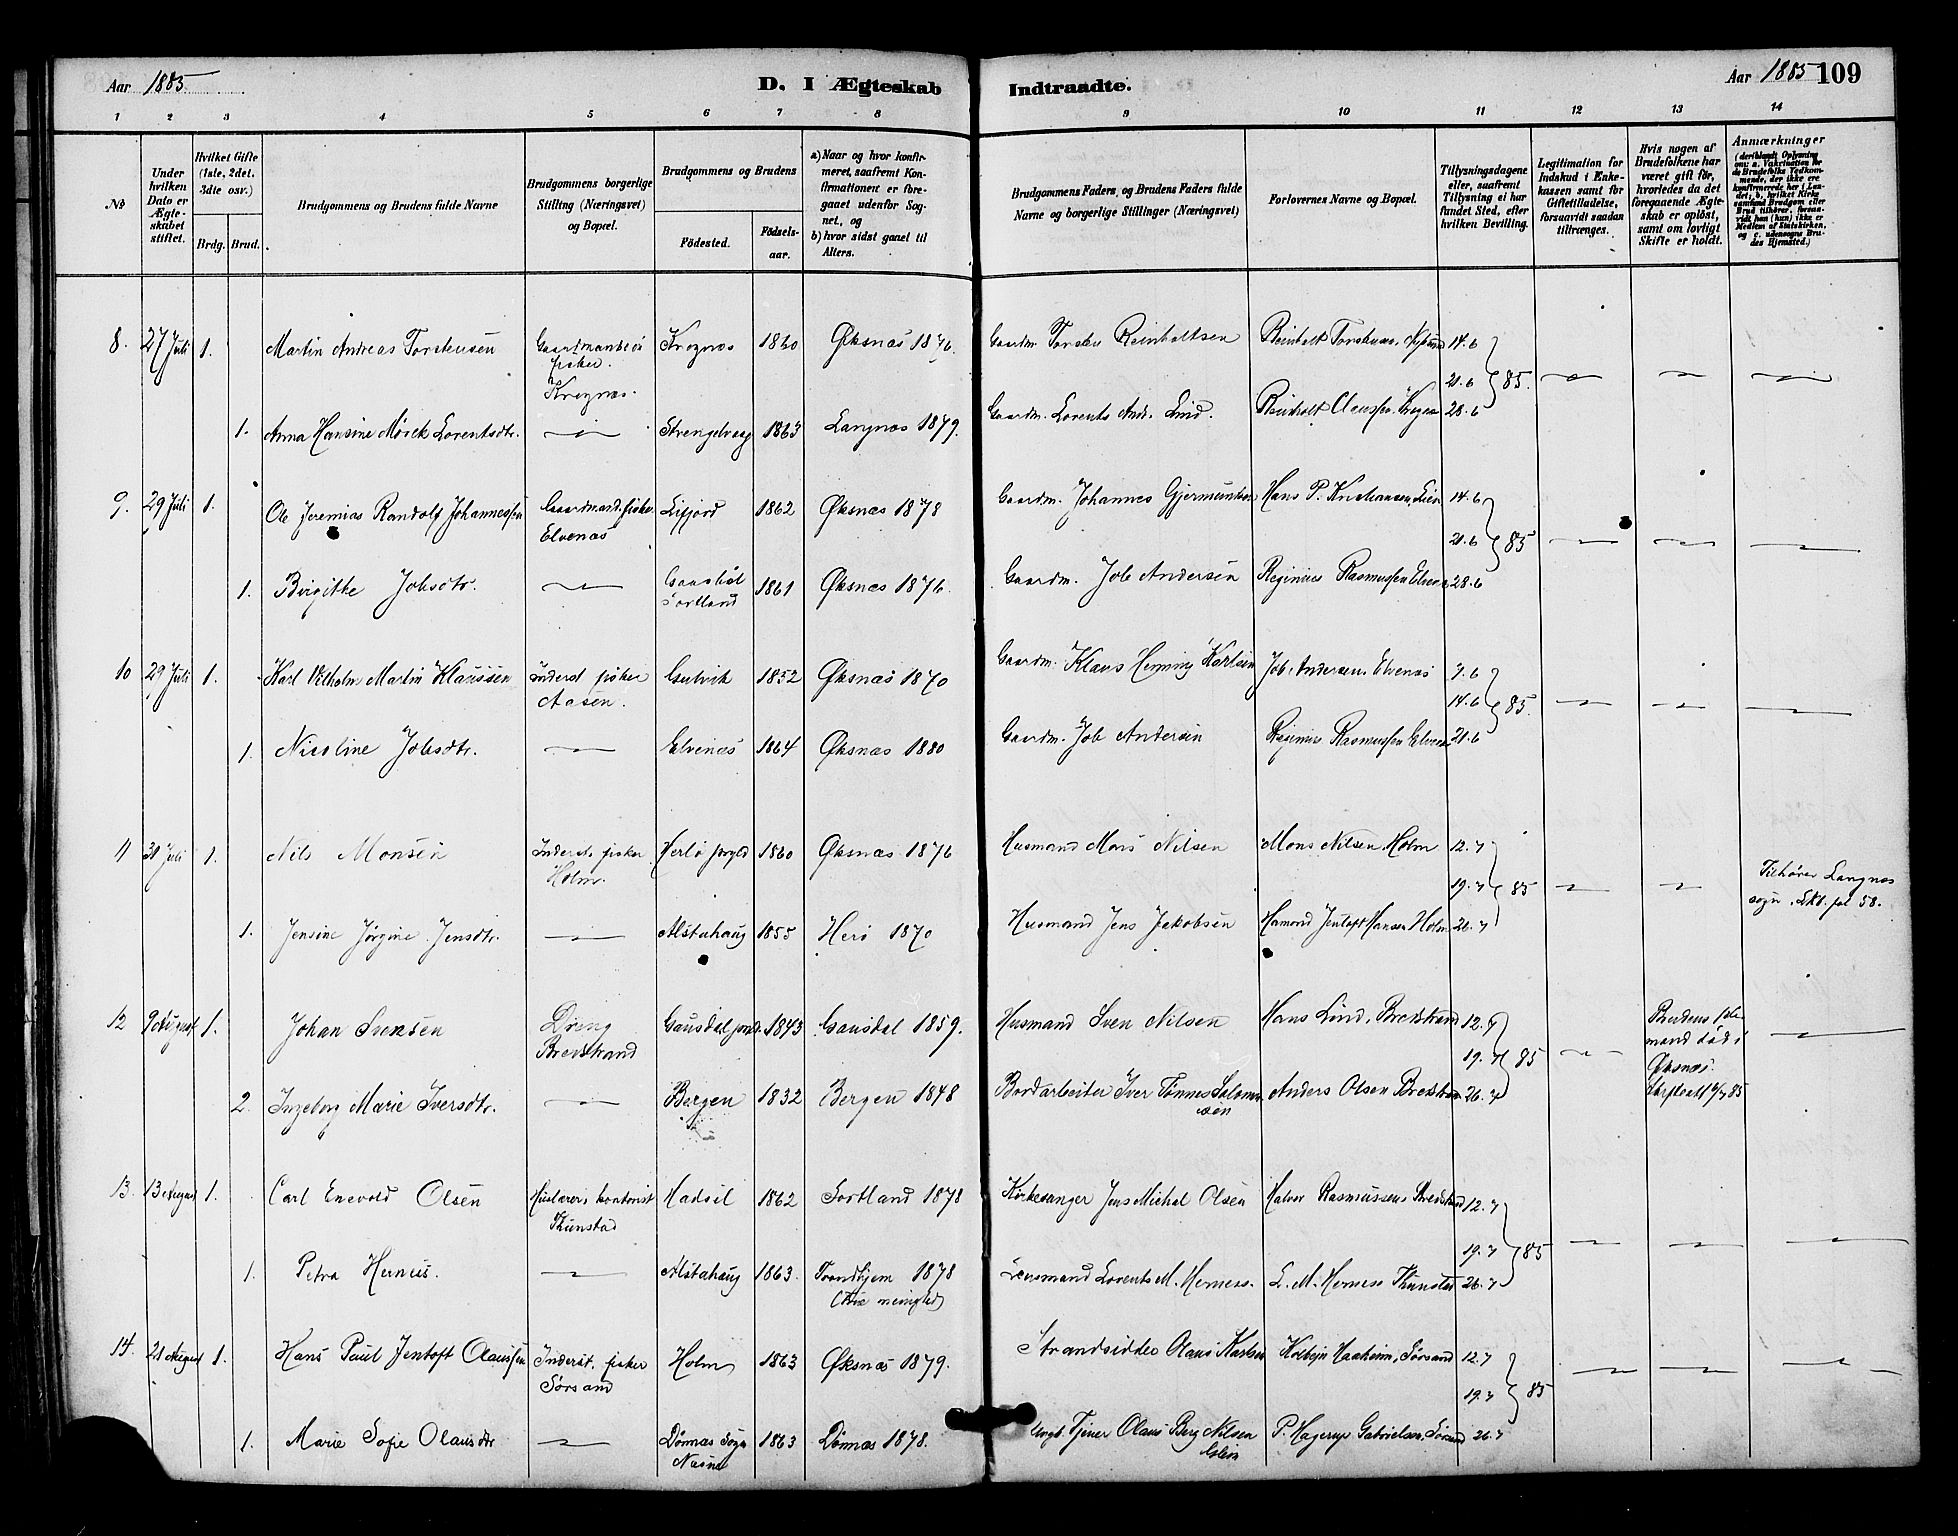 Aar 1885.
D. I Ægteskab
Indtraadte.
Aar 1885
109
1 2 3 4 5 6 7 8 9 10 11 12 13 14
No
Under hvilken Dato er Ægteskabet stiftet.
Hvilket Gifte (1ste, 2det, 3dte osv.)
Brdg. Brud.
Brudgommens og Brudens fulde Navne
Brudgommens borgerlige Stilling (Næringsvei) og Bopæl.
Brudgommens og Brudens
Fødested.
Fødselsaar.
a) Naar og hvor konfirmeret, saafremt Konfirmationen er foregaaet udenfor Sognet, og
b) hvor sidst gaaet til Alters.
Brudgommens Faders, og Brudens Faders fulde Navne og borgerlige Stillinger (Næringsvei)
Forlovernes Navne og Bopæl.
Tillysningsdagene eller, saafremt Tillysning ei har fundet Sted, efter hvilken Bevilling.
Legitimation for Indskud i Enkekassen samt for Giftetilladelse, forsaavidt saadan tiltrænges.
Hvis nogen af Brudefolkene har været gift før, hvorledes da det foregaaende Ægteskab er opløst, samt om lovligt Skifte er holdt.
Anmærkninger
(deriblandt Oplysning om: a. Vakcination for de Brudefolks Vedkommende, der ikke ere konfirmerede her i Landet, b. hvilket Kirkesamfund Brudgom eller Brud tilhører, forsaavidt han (hun) ikke er Medlem af Statskirken, og c. udensogns Brudes Hjemsted.)
8. 27 Juli 1. Martin Andreas Torstensen fisker. 1860 Øksnæs 1876. Gaardm. Reinholtsen 14.6
21.6 85.
1. Anna Hansine Mørck Lorentsdtr. Strengelvaag 1863 Langnæs 1879. Gaardm. Lorents And. Lind. 28.6
9. 29 Juli 1. Ole Jeremias Randolf Johannessen Elvenæs Lifjord 1862 Øksnæs 1878 Gaardm. Johannes Hans P. Kristiansen 14.6
21.6 85
1. Birgitte Jobsdtr. Sortland 1861 Øksnæs 1876. Gaardm. Job Andersen Reginius Rasmussen 28.6
10 29 Juli 1. Karl Vilhelm Martin Klaussen Inderst fisker Aasen. 1852 Øksnæs 1870 Gaardm. Klaus Karlsen Job Andersen, Elvenæs 7.6
14.6 85.
1. Nicoline Jobsdtr. Elvenæs 1864 Øksnæs 1880 Gaardm. Job Andersen Reginius Rasmussen 21.6
11 30 Juli 1. Nils Monsen Inderst, fisker Holm. Herø 1860 Øksnæs 1876 Husmand Mons Nilsen Mons Nilsen Holm 12.7
19.7 85 Tilhører Langnæs sogn.
1. Jensine Jørgine Jensdtr. Alstahaug 1855 Herø 1870 Husmand Jens Jakobsen Jentoft Hansen Holm 26.7
12 9 August 1. Johan Svensen Dreng Bredstrand 1843 Gausdal 1859. Husmand Sven Nilsen Hans Lind, Bredstrand 12.7 Brudens mand død i Øksnæs.
19.7 85
2. Ingeborg Marie Iversdtr. Bergen 1832 Bergen 1848 Bordarbeider Iver Tønnes Salomonsen Anders Olsen 26.7
13. 13 August 1. Carl Enevold Olsen Huslærer, kontorist Tunstad Hadsel 1862 Sortland 1878 Kirkesanger Jens Michal Olsen Halvor Rasmussen 12.7
19.7 85
1. Petra Alstahaug 1863. Trondhjem 1878 Lorents M. L. M. 26.7
14. 21 August 1. Hans Paul Jentoft Olaussen Inderst, fisker Sørsand Holm 1863 Øksnæs 1879. Strandsidder Olaus Karlsen Sørsand 12.7
19.7 85
1. Marie Sofie Olausdtr Dønnæs Sogn 1863 Dønnæs 1878. Tjener Olaus Berg Nilsen P. Hagerup Gabrielsen 26.7